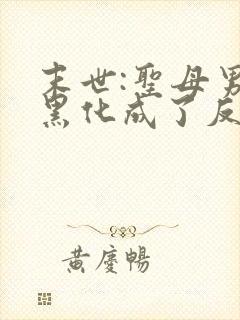 末世:聖母男
黑化成了反
黃慶暢